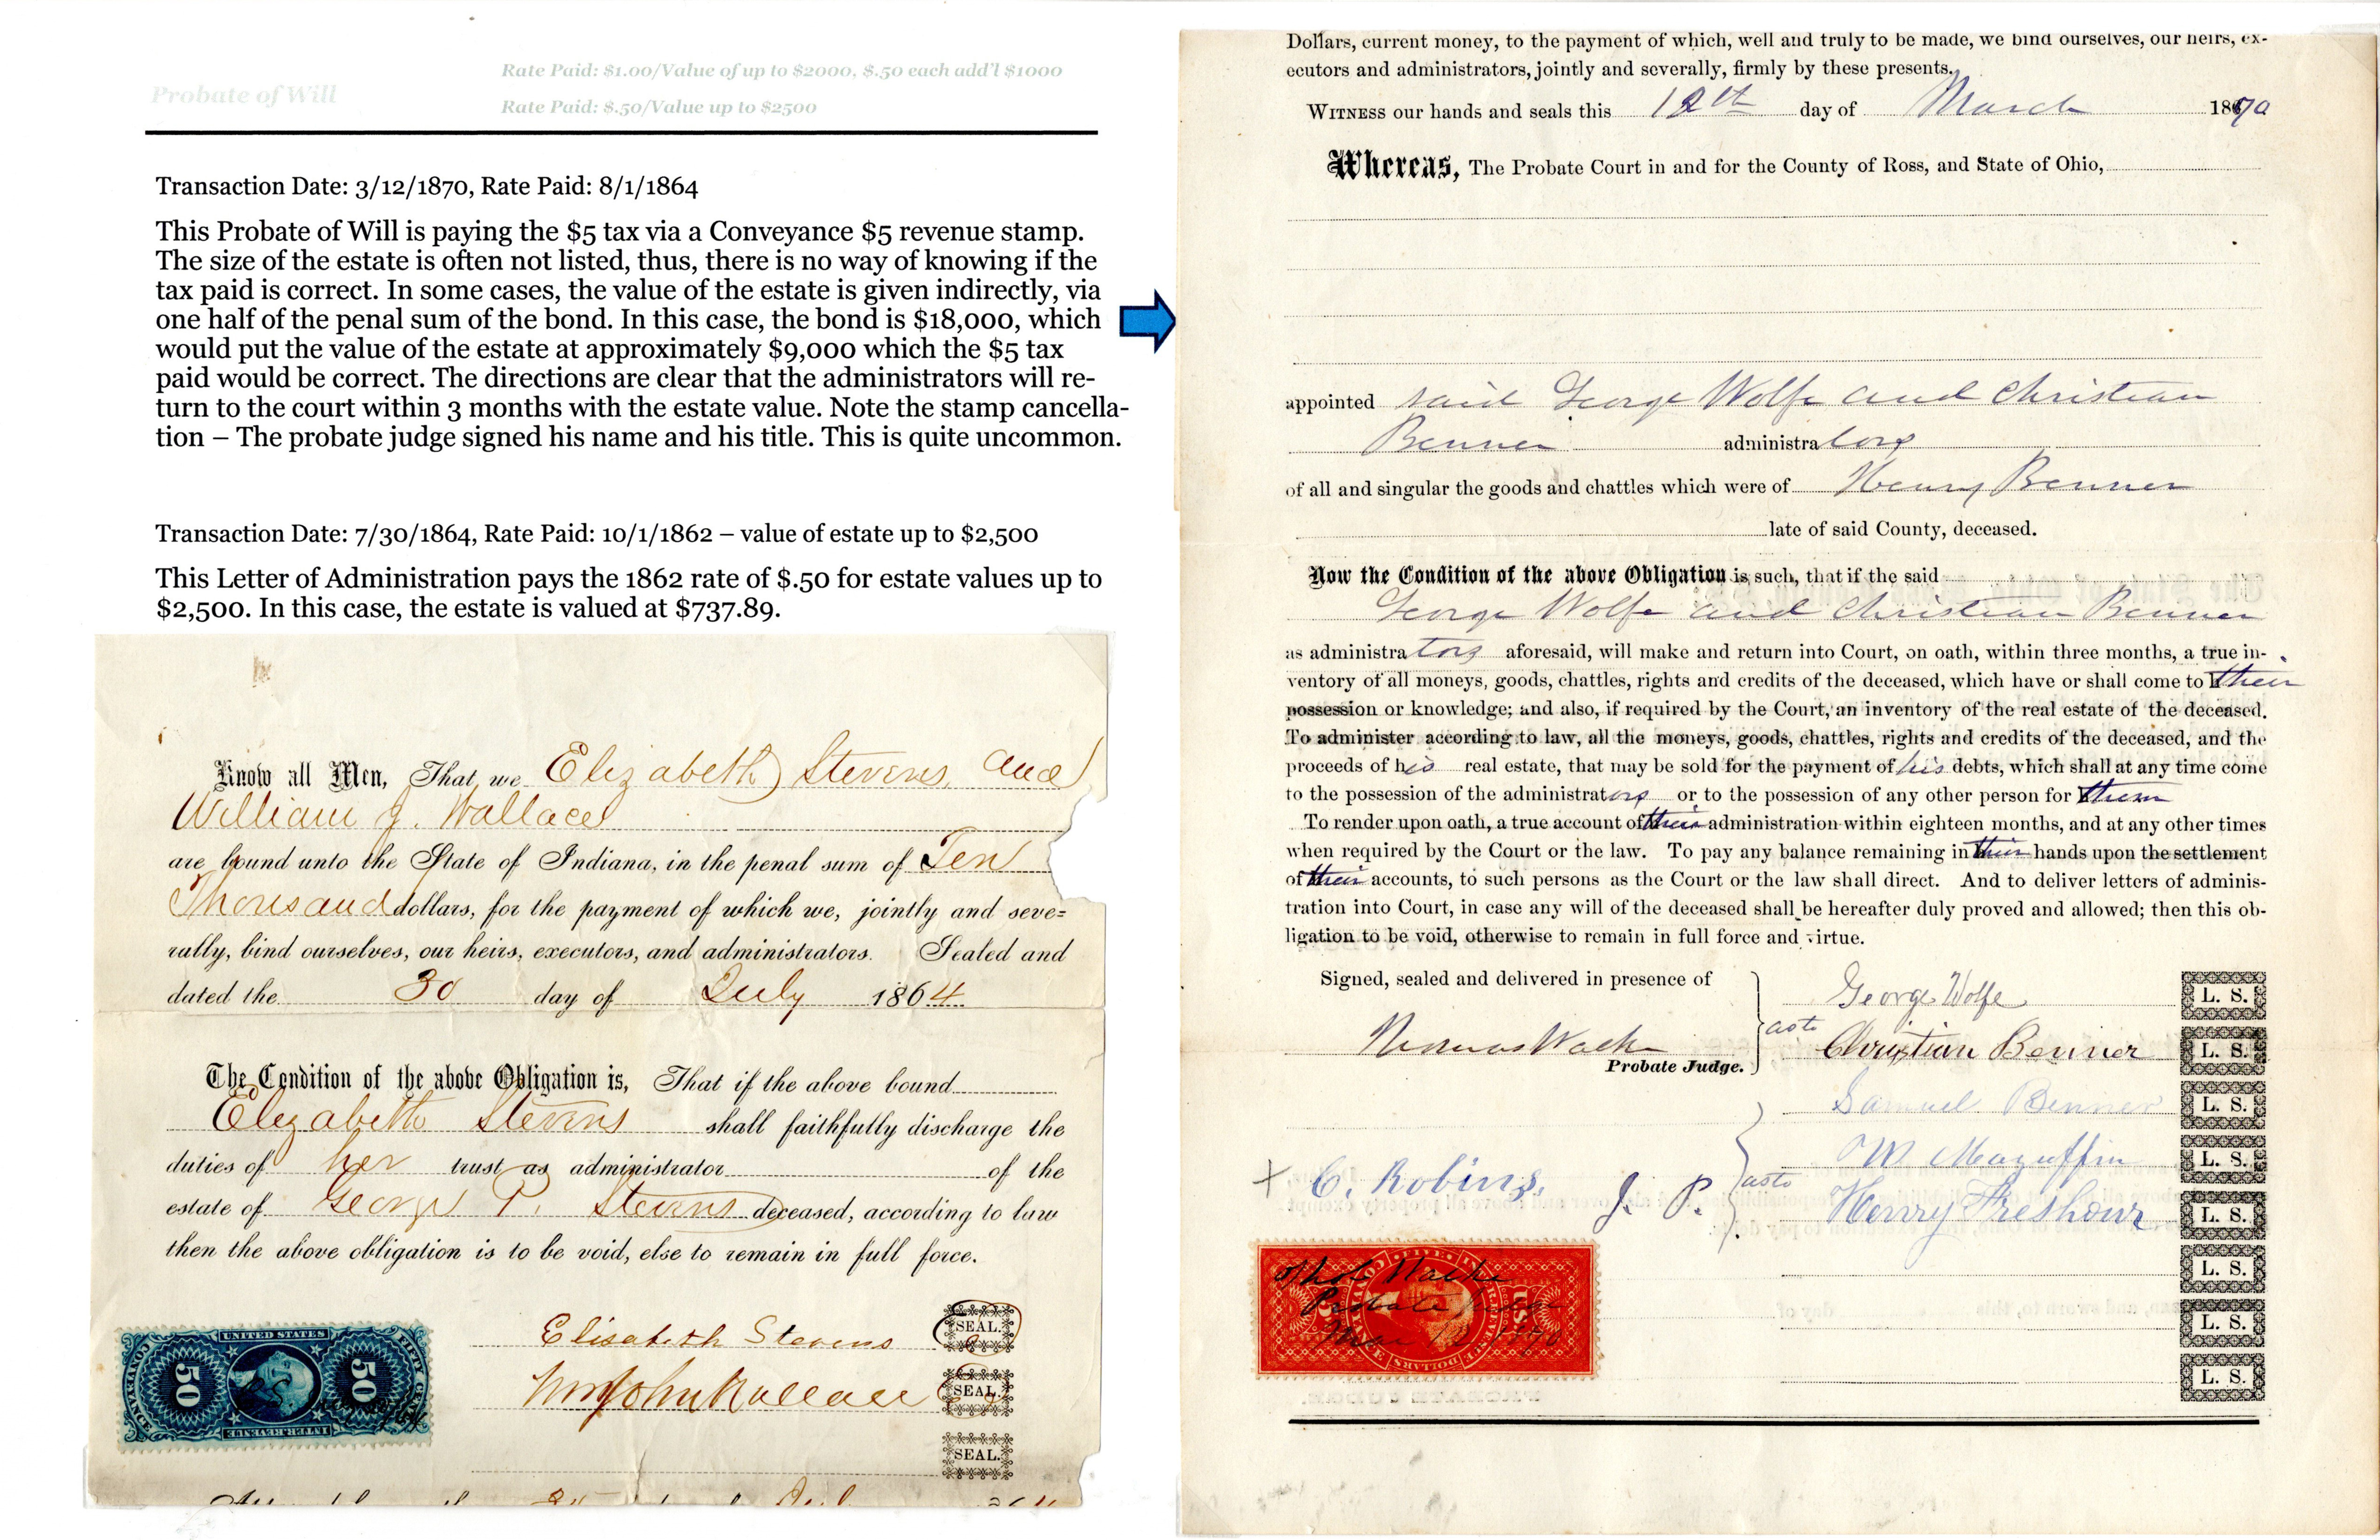 Probate of Will
Rate Paid: $1.00/Value of up to $2000, $.50 each add'l $1000
Rate Paid: $.50/Value up to $2500
Transaction Date: 3/12/1870, Rate Paid: 8/1/1864
This Probate of Will is paying the $5 tax via a Conveyance $5 revenue stamp.
The size of the estate is often not listed, thus, there is no way of knowing if the
tax paid is correct. In some cases, the value of the estate is given indirectly, via
one half of the penal sum of the bond. In this case, the bond is $18,000, which
would put the value of the estate at approximately $9,000 which the $5 tax
paid would be correct. The directions are clear that the administrators will re-
turn to the court within 3 months with the estate value. Note the stamp cancella-
tion – The probate judge signed his name and his title. This is quite uncommon.
Transaction Date: 7/30/1864, Rate Paid: 10/1/1862 – value of estate up to $2,500
This Letter of Administration pays the 1862 rate of $.50 for estate values up to
$2,500. In this case, the estate is valued at $737.89.
Know all Men, That we Elizabeth Stevens, and
William J. Wallace
are bound unto the State of Indiana, in the penal sum of Ten
Thousand dollars, for the payment of which we, jointly and seve=
rally, bind ourselves, our heirs, executors, and administrators. Sealed and
dated the 30 day of July 1864
The Condition of the above Obligation is, That if the above bound
Elizabeth Stevens shall faithfully discharge the
duties of her trust as administrator of the
estate of George P. Stevens deceased, according to law
then the above obligation is to be void, else to remain in full force.
Elisabeth Stevens SEAL.
Wm John Wallace SEAL.
SEAL.
UNITED STATES
CONVEYANCE 50 50 FIFTY CENTS
INTER. REVENUE
Dollars, current money, to the payment of which, well and truly to be made, we bind ourselves, our heirs, ex-
ecutors and administrators, jointly and severally, firmly by these presents.
WITNESS our hands and seals this 12th day of March 1870
Whereas, The Probate Court in and for the County of Ross, and State of Ohio,
appointed said George Wolfe and Christian
Benner administrators
of all and singular the goods and chattles which were of Henry Benner
late of said County, deceased.
Now the Condition of the above Obligation is such, that if the said
George Wolfe and Christian Benner
as administrators aforesaid, will make and return into Court, on oath, within three months, a true in-
ventory of all moneys, goods, chattles, rights and credits of the deceased, which have or shall come to their
possession or knowledge; and also, if required by the Court, an inventory of the real estate of the deceased.
To administer according to law, all the moneys, goods, chattles, rights and credits of the deceased, and the
proceeds of his real estate, that may be sold for the payment of his debts, which shall at any time come
to the possession of the administrators or to the possession of any other person for them
To render upon oath, a true account of their administration within eighteen months, and at any other times
when required by the Court or the law. To pay any balance remaining in their hands upon the settlement
of their accounts, to such persons as the Court or the law shall direct. And to deliver letters of adminis-
tration into Court, in case any will of the deceased shall be hereafter duly proved and allowed; then this ob-
ligation to be void, otherwise to remain in full force and virtue.
Signed, sealed and delivered in presence of
George Wolfe L. S.
as to Christian Benner L. S.
Probate Judge.
Samuel Benner L. S.
W Maguffin L. S.
C. Robins. J. P. as to
Henry Freshour L. S.
L. S.
L. S.
L. S.
Probate Judge
Mar 12 1870